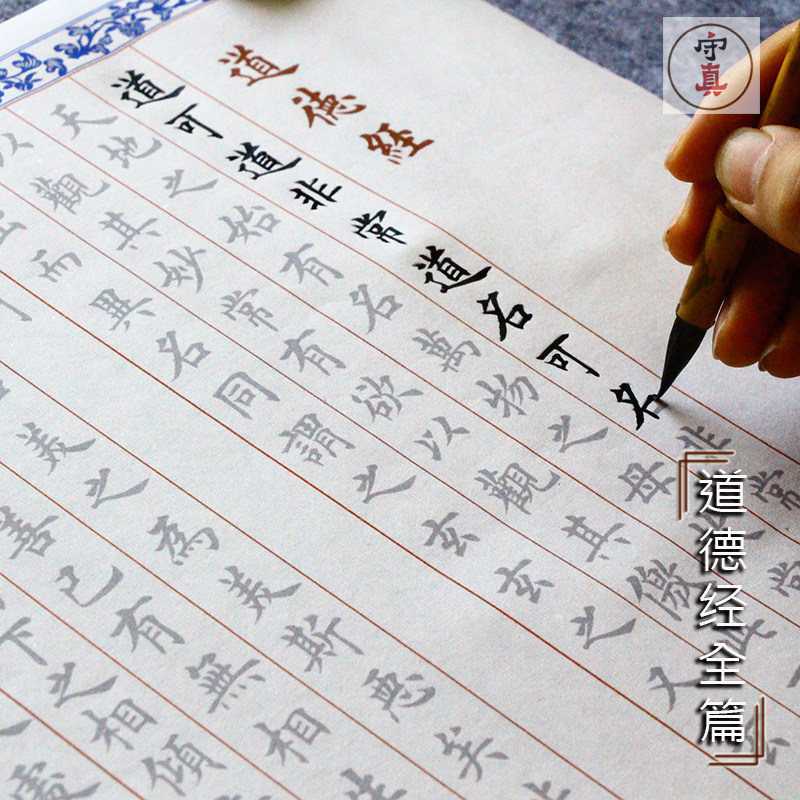 守真
道德经
道可道非常道名可名非常
天地之始有名萬物之母
以觀其妙常有欲以觀其徼此
而異名同謂之玄玄之又
美之為美斯惡矣
善已有無相
下之相傾
道德经全篇